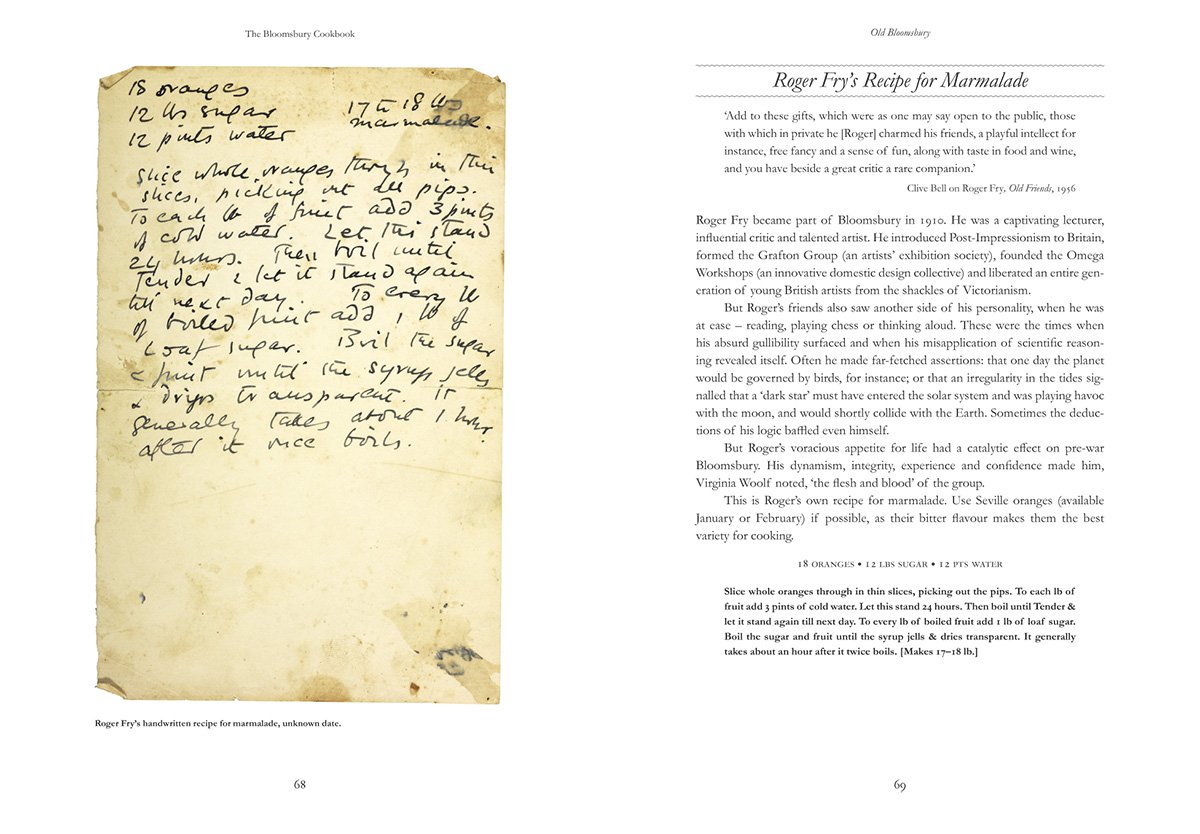 The Bloomsbury Cookbook
18 oranges
12 lbs sugar
12 pints water
17 to 18 lbs
marmalade.
Slice whole oranges through in thin
slices, picking out all pips.
To each lb of fruit add 3 pints
of cold water. Let this stand
24 hours. Then boil until
Tender & let it stand again
till next day. To every lb
of boiled fruit add 1 lb of
Loaf sugar. Boil the sugar
& fruit until the syrup jells
& drips transparent. It
generally takes about 1 hour
after it once boils.
Roger Fry's handwritten recipe for marmalade, unknown date.
68
Old Bloomsbury
Roger Fry's Recipe for Marmalade
'Add to these gifts, which were as one may say open to the public, those
with which in private he [Roger] charmed his friends, a playful intellect for
instance, free fancy and a sense of fun, along with taste in food and wine,
and you have beside a great critic a rare companion.'
Clive Bell on Roger Fry, Old Friends, 1956
Roger Fry became part of Bloomsbury in 1910. He was a captivating lecturer,
influential critic and talented artist. He introduced Post-Impressionism to Britain,
formed the Grafton Group (an artists' exhibition society), founded the Omega
Workshops (an innovative domestic design collective) and liberated an entire gen-
eration of young British artists from the shackles of Victorianism.
But Roger's friends also saw another side of his personality, when he was
at ease – reading, playing chess or thinking aloud. These were the times when
his absurd gullibility surfaced and when his misapplication of scientific reason-
ing revealed itself. Often he made far-fetched assertions: that one day the planet
would be governed by birds, for instance; or that an irregularity in the tides sig-
nalled that a 'dark star' must have entered the solar system and was playing havoc
with the moon, and would shortly collide with the Earth. Sometimes the deduc-
tions of his logic baffled even himself.
But Roger's voracious appetite for life had a catalytic effect on pre-war
Bloomsbury. His dynamism, integrity, experience and confidence made him,
Virginia Woolf noted, 'the flesh and blood' of the group.
This is Roger's own recipe for marmalade. Use Seville oranges (available
January or February) if possible, as their bitter flavour makes them the best
variety for cooking.
18 ORANGES • 12 LBS SUGAR • 12 PTS WATER
Slice whole oranges through in thin slices, picking out the pips. To each lb of
fruit add 3 pints of cold water. Let this stand 24 hours. Then boil until Tender &
let it stand again till next day. To every lb of boiled fruit add 1 lb of loaf sugar.
Boil the sugar and fruit until the syrup jells & dries transparent. It generally
takes about an hour after it twice boils. [Makes 17–18 lb.]
69